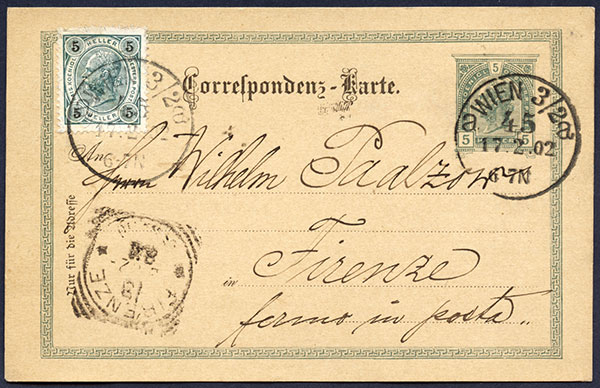 5 HELLER 5
5 5
Correspondenz-Karte.
5 5
WIEN 3/2
45
17.2.02
6-7N
WIEN 3/2
6-7N
An
Herrn Wilhelm Paalzow
in Firenze
fermo in posta.
Nur für die Adresse
FIRENZE